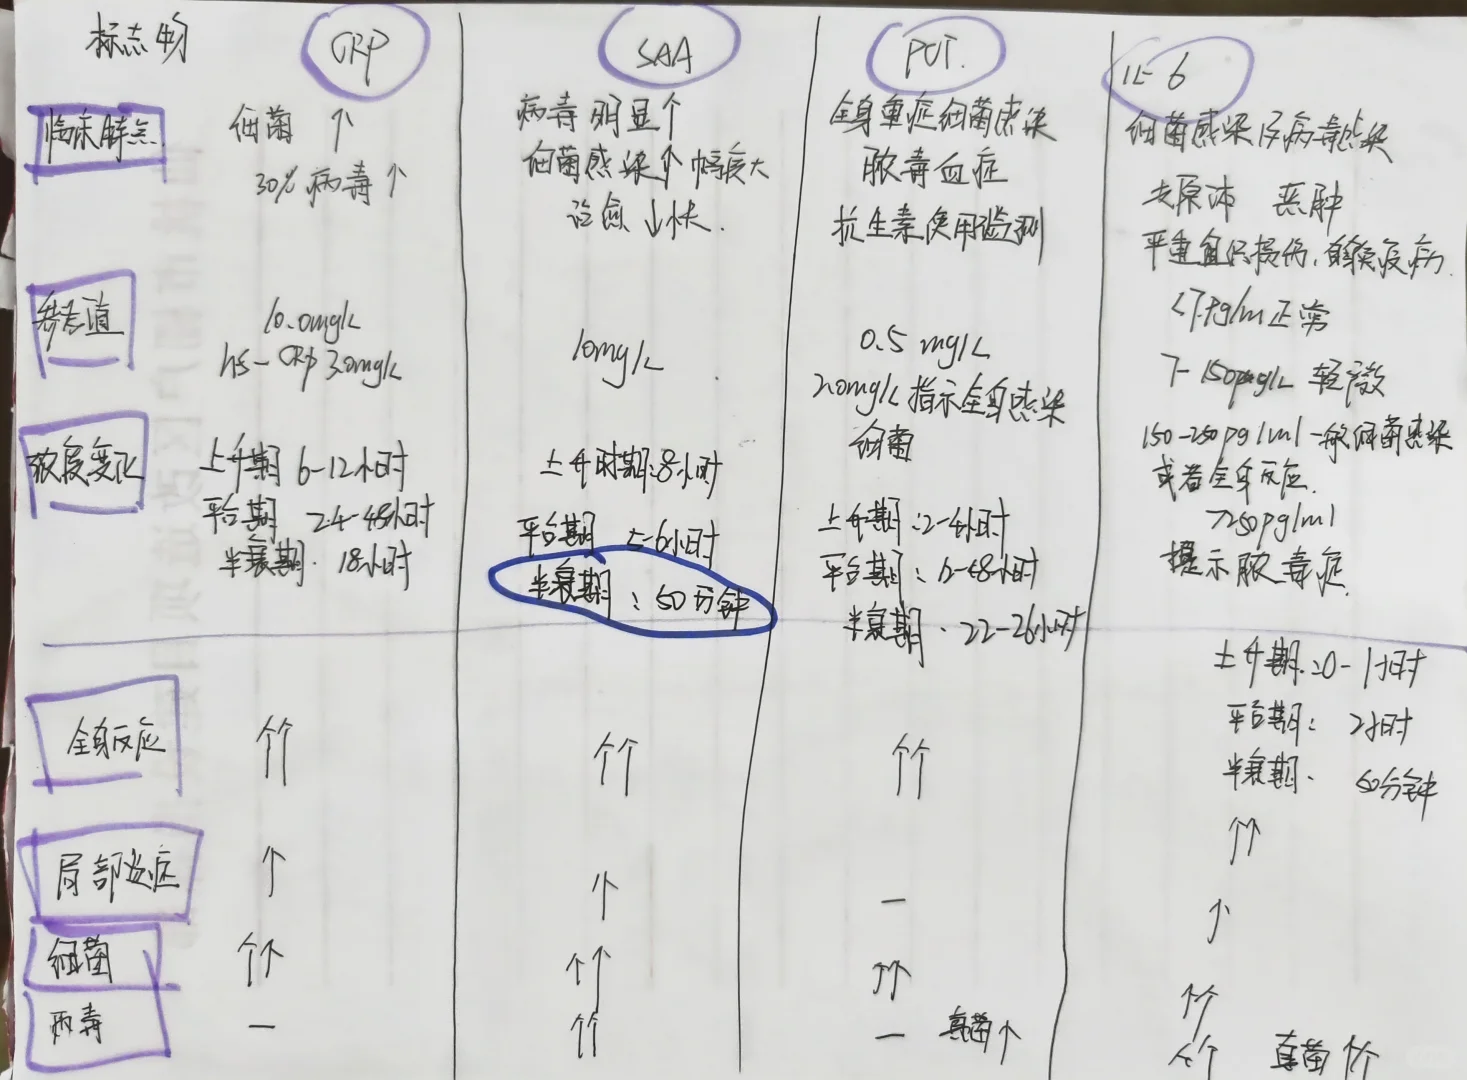 标志物 CRP SAA PCT. IL-6
临床特点
细菌 ↑
30% 病毒↑
病毒 明显↑
细菌感染↑幅度大
治愈 ↓快.
全身重症细菌感染
脓毒血症
抗生素使用监测
细菌感染 病毒感染
支原体 恶肿
严重组织损伤,自身免疫病.
参考值
10.0mg/L
hs-CRP 3.0mg/L
10mg/L
0.5 mg/L
2.0mg/L 指示全身感染
细菌
<7pg/ml 正常
7-150 轻微
150-250pg/ml 一般细菌感染
或者全身反应.
>250pg/ml
提示脓毒症.
浓度变化
上升期 6-12小时
平台期 24-48小时
半衰期. 18小时
上升时期:8小时
平台期 5-6小时
半衰期:50分钟
上升期:2-4小时
平台期: 12-48小时
半衰期. 22-26小时
上升期: 0-1小时
平台期: 2小时
半衰期. 60分钟
全身反应 ↑↑ ↑↑ ↑↑ ↑↑
局部炎症 ↑ ↑ — ↑
细菌 ↑↑ ↑↑ ↑↑ ↑↑
病毒 — ↑↑ — 真菌↑ ↑↑ 真菌 ↑↑